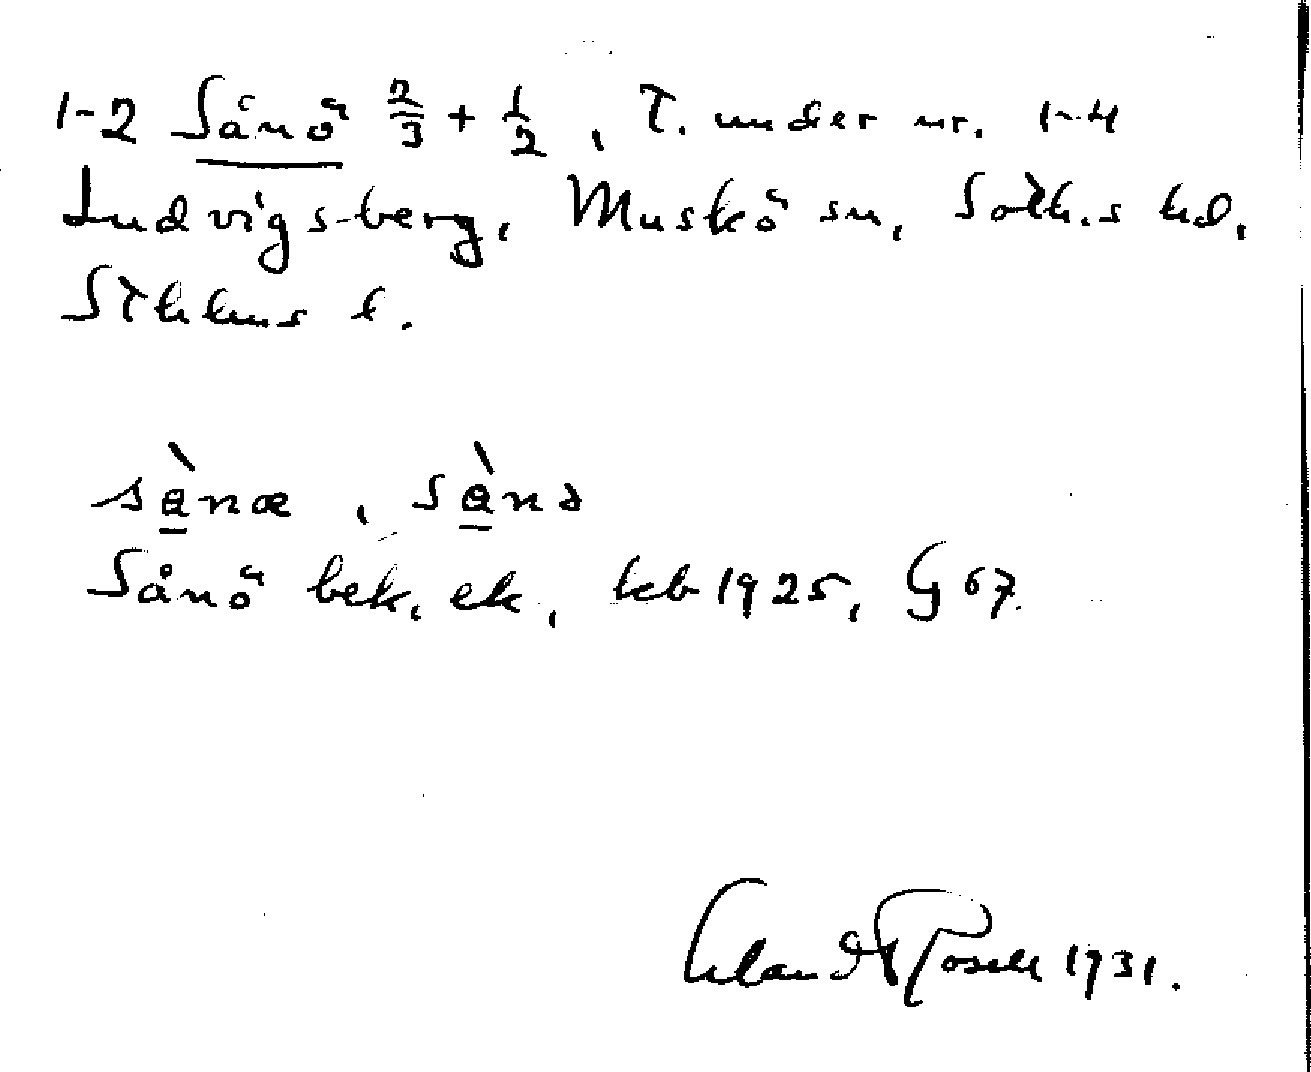 1-2 Sånö 2/3 + 1/2, T. under nr. 1-4
Ludvigsberg, Muskö sn, Soth.s hd,
Sthlms l.
sànæ, sànə
Sånö bek. ek, leb 1925, G 67.
Erland Rosell 1931.